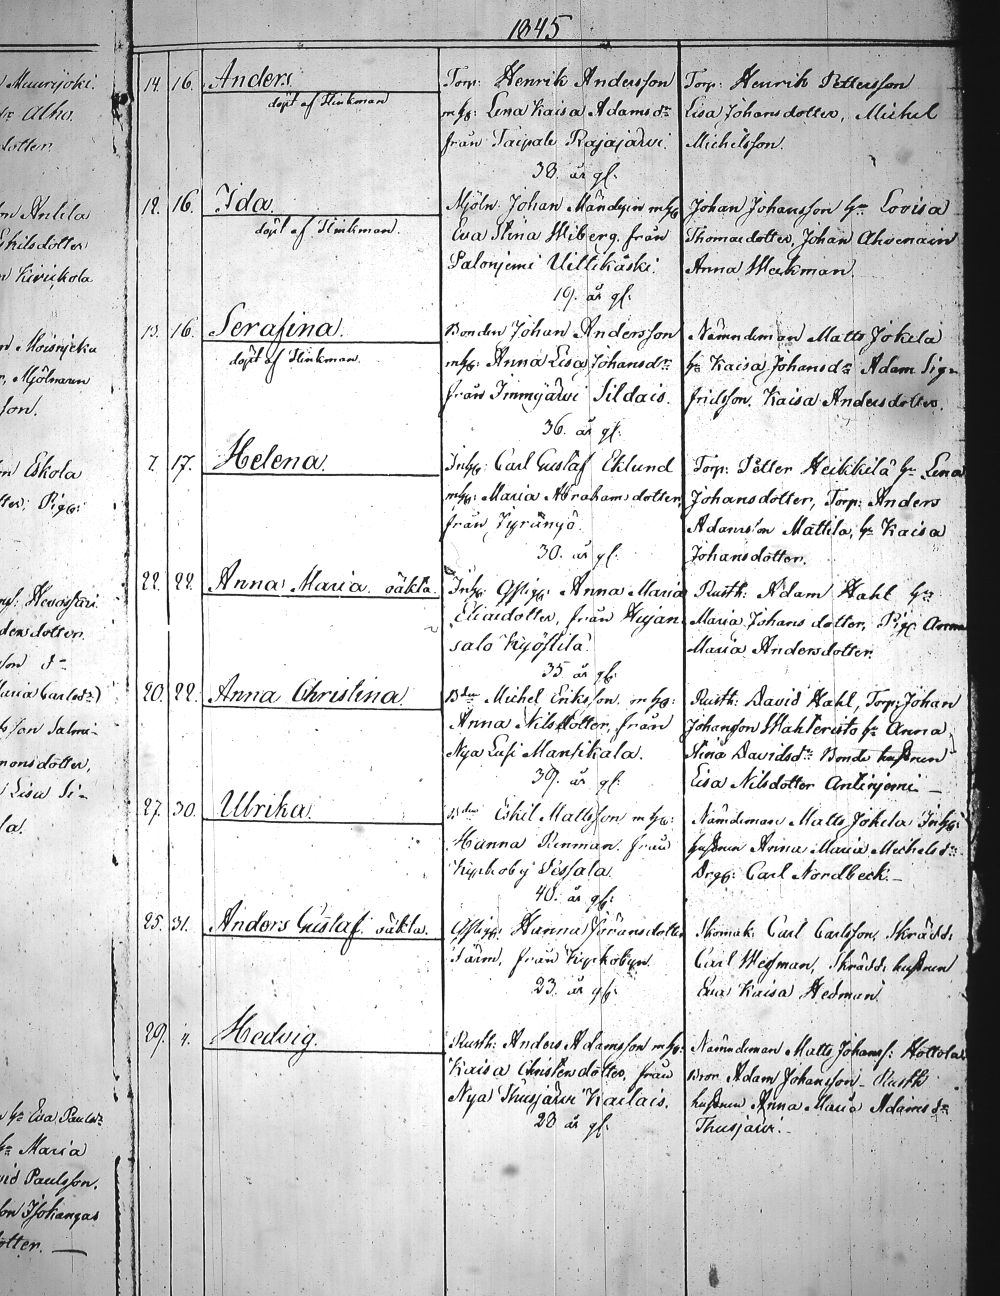 1845
14. 16. Anders.
döpt af Flinkman
Torp: Henrik Andersson
mhu: Lena Kaisa Adamsdr
från Taipale Rajajärvi.
38. år gl.
Torp: Henrik Pettersson
Lisa Johansdotter, Michel
Michelsson.
12. 16. Ida.
döpt af Flinkman.
Mjöln: Johan mhu
Eva Stina Wiberg. från
Salonjemi
19. år gl.
Johan Johansson hu Lovisa
Thomasdotter, Johan Ahvenain
Anna
13. 16. Serafina.
döpt af Flinkman.
Bonden Johan Andersson
mhu: Anna Lisa Johansdr
från Immjärvi Sildais.
36. år gl.
Nämndeman Matts Jokela
hu Kaisa Johansdr Adam Sig-
fridsson. Kaisa Andersdotter.
7. 17. Helena.
Inh: Carl Gustaf Eklund
mhu: Maria Abrahamsdotter,
från
30. år gl.
Torp: Petter Heikkilä hu Lena
Johansdotter, Torp: Anders
Adamsson Mattila, hu Kaisa
Johansdotter.
22. 22. Anna Maria. oäkta.
Inh: Qfpig: Anna Maria
Eliaedotter, från
salo Kyöstilä.
35 år gl.
Rusth: Adam Hahl hu
Maria Johansdotter, Pig: Anna
Maria Andersdotter.
20. 22. Anna Christina.
Bdn Michel Eriksson. mhu:
Anna Nilsdotter, från
Nya Mansikala.
39. år gl.
Rusth: David Hahl, Torp: Johan
Johansson hu Anna
Stina Davidsdr Bonde hustrun
Lisa Nilsdotter Antinjemi –
27. 30. Ulrika.
Bdn Eskil Mattsson mhu:
Hanna Renman. från
Kyrkoby
40. år gl.
Nämdeman Matts Jokela Inh:
hustrun Anna Maria Michelsdr
Drg: Carl Nordbeck. –
25. 31. Anders Gustaf. oäkta.
Qfpig: Hanna Göransdotter
Färm, från Kyrkobyn.
23. år gl.
Skomak: Carl Carlsson, Skrädd:
Carl Wegman, Skrädd: hustrun
Eva Kaisa Hedman.
29. 4. Hedvig.
Rusth: Anders Adamsson mhu:
Kaisa Christersdotter, från
Nya Thusjärvi Kailais.
28 år gl.
Nämndeman Matts Johanss: Hottola
Bror Adam Johansson – Rusth
hustrun Anna Maria Adamsdr
Thusjärvi. –
Muurijoki.
Alho.
dotter.
Antila
Eskilsdotter
Moisnjeka
Mjölnaren
son.
Eskola
Pig:
dersdotter.
Maria Carlsdr
Salmi-
monsdotter,
Lisa Si-
la.
hu Eva Paulsdr
hu Maria
vid Paulsson.
Isokangas
otter. —